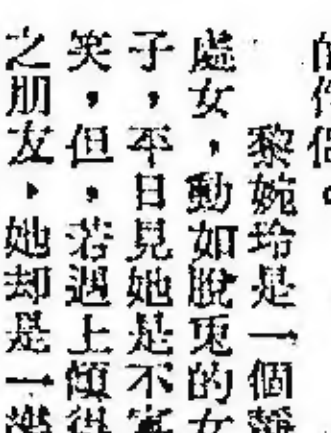 黎婉玲是一個靜
處女,動如脫兎的女
子,平日見她是不
笑,但,若遇上傾得
之朋友,她却是一